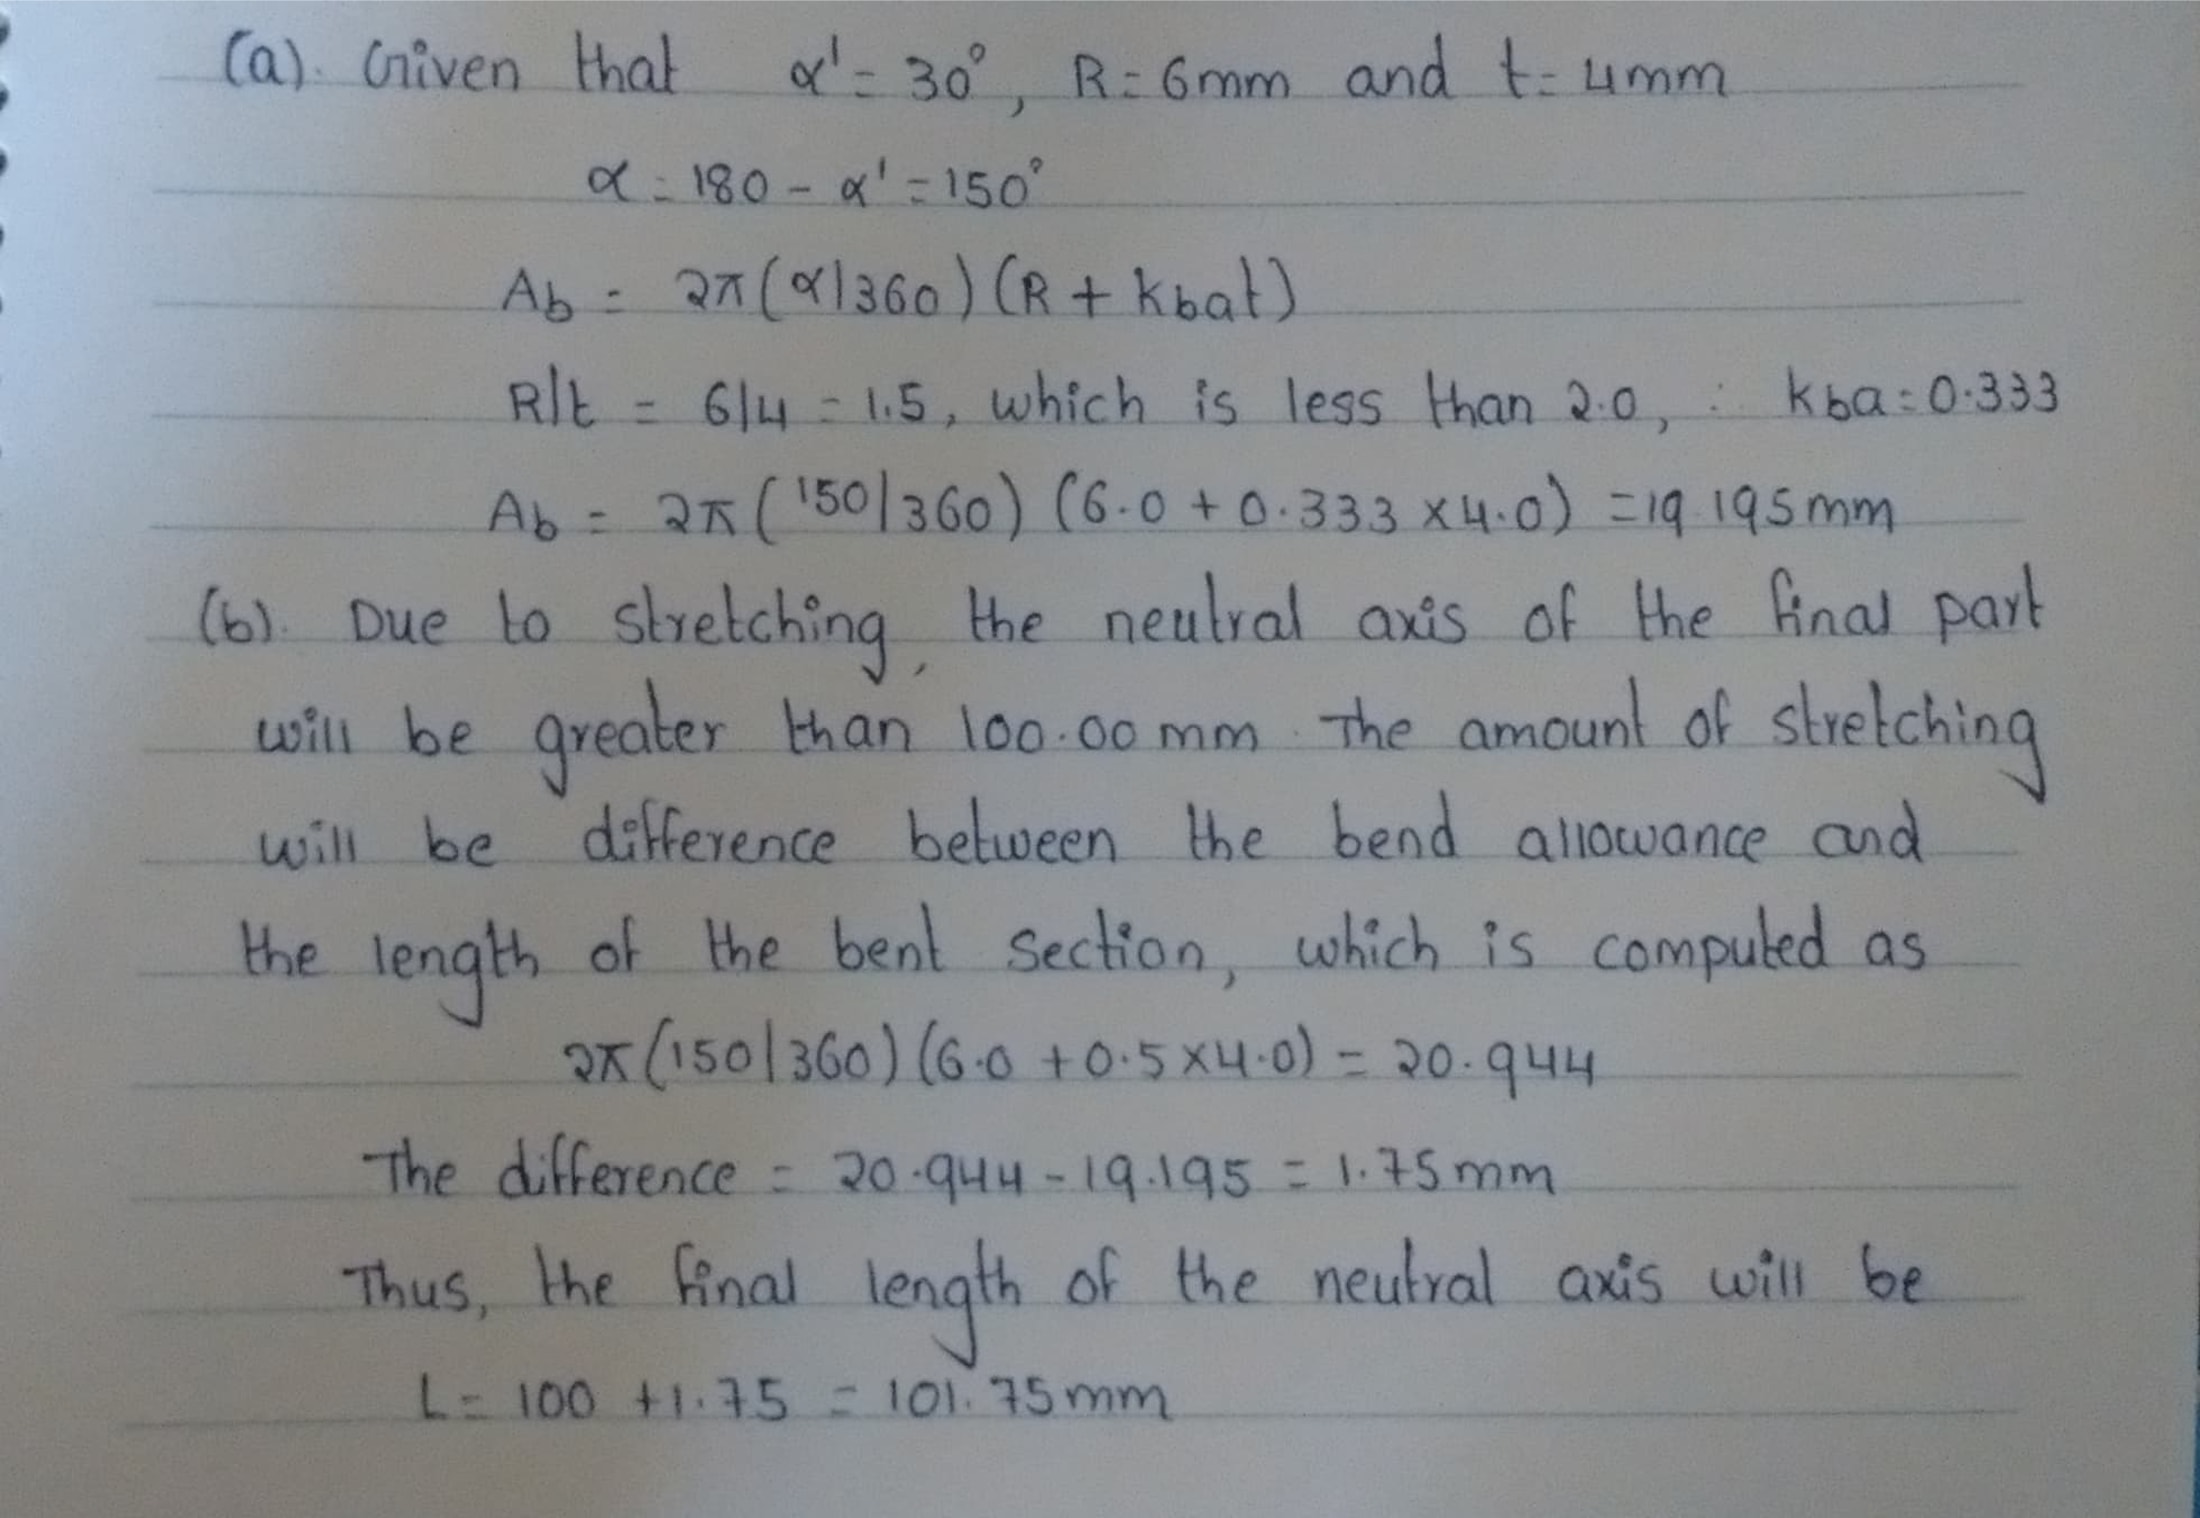 (a). Given that α' = 30°, R = 6mm and t = 4mm
α = 180 - α' = 150°
Ab = 2π(α/360)(R + Kbat)
R/t = 6/4 = 1.5, which is less than 2.0, ∴ Kba = 0.333
Ab = 2π(150/360) (6.0 + 0.333 × 4.0) = 19.195mm
(b). Due to stretching, the neutral axis of the final part
will be greater than 100.00 mm. The amount of stretching
will be difference between the bend allowance and
the length of the bent section, which is computed as
2π(150/360)(6.0 + 0.5 × 4.0) = 20.944
The difference = 20.944 - 19.195 = 1.75mm
Thus, the final length of the neutral axis will be
L = 100 + 1.75 = 101.75mm